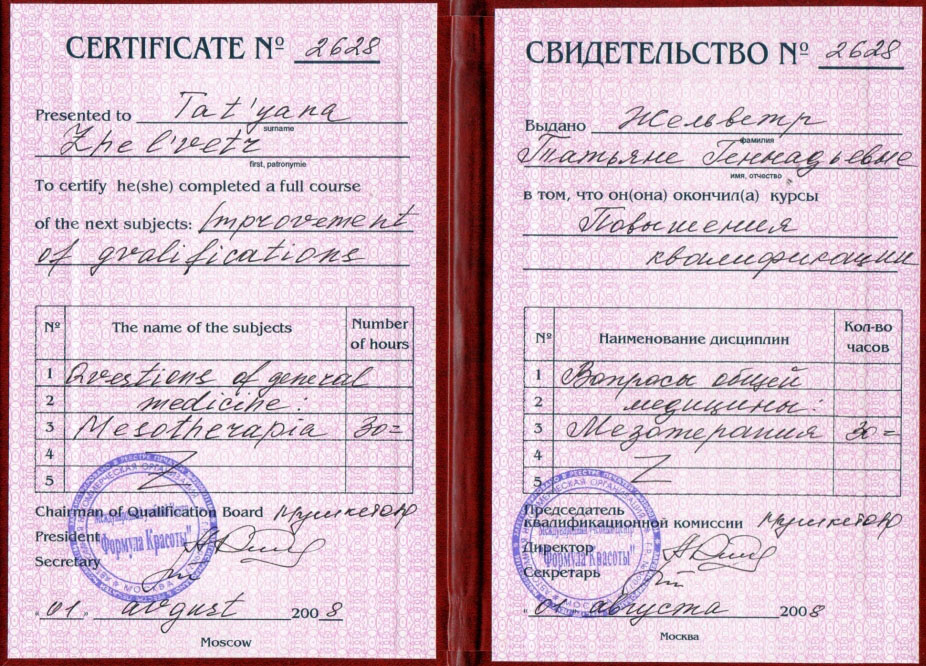 CERTIFICATE № 2628
Presented to Tat'yana
surname
Zhel'vetr
first, patronymie
To certify he(she) completed a full course
of the next subjects: Improvement
of gvalifications
№ The name of the subjects Number of hours
1 Qvestions of general
2 medicine:
3 Mesotherapia 30=
4 Z
5
Chairman of Qualification Board
President
Secretary
"Формула Красоты"
МОСКВА
"01" avgust 2008
Moscow
СВИДЕТЕЛЬСТВО № 2628
Выдано Жельветр
фамилия
Татьяне Геннадьевне
имя, отчество
в том, что он(она) окончил(а) курсы
Повышения
квалификации
№ Наименование дисциплин Кол-во часов
1 Вопросы общей
2 медицины:
3 Мезотерапия 30=
4 Z
5
Председатель
квалификационной комиссии
Директор
Секретарь
"Формула Красоты"
МОСКВА
"01" августа 2008
Москва